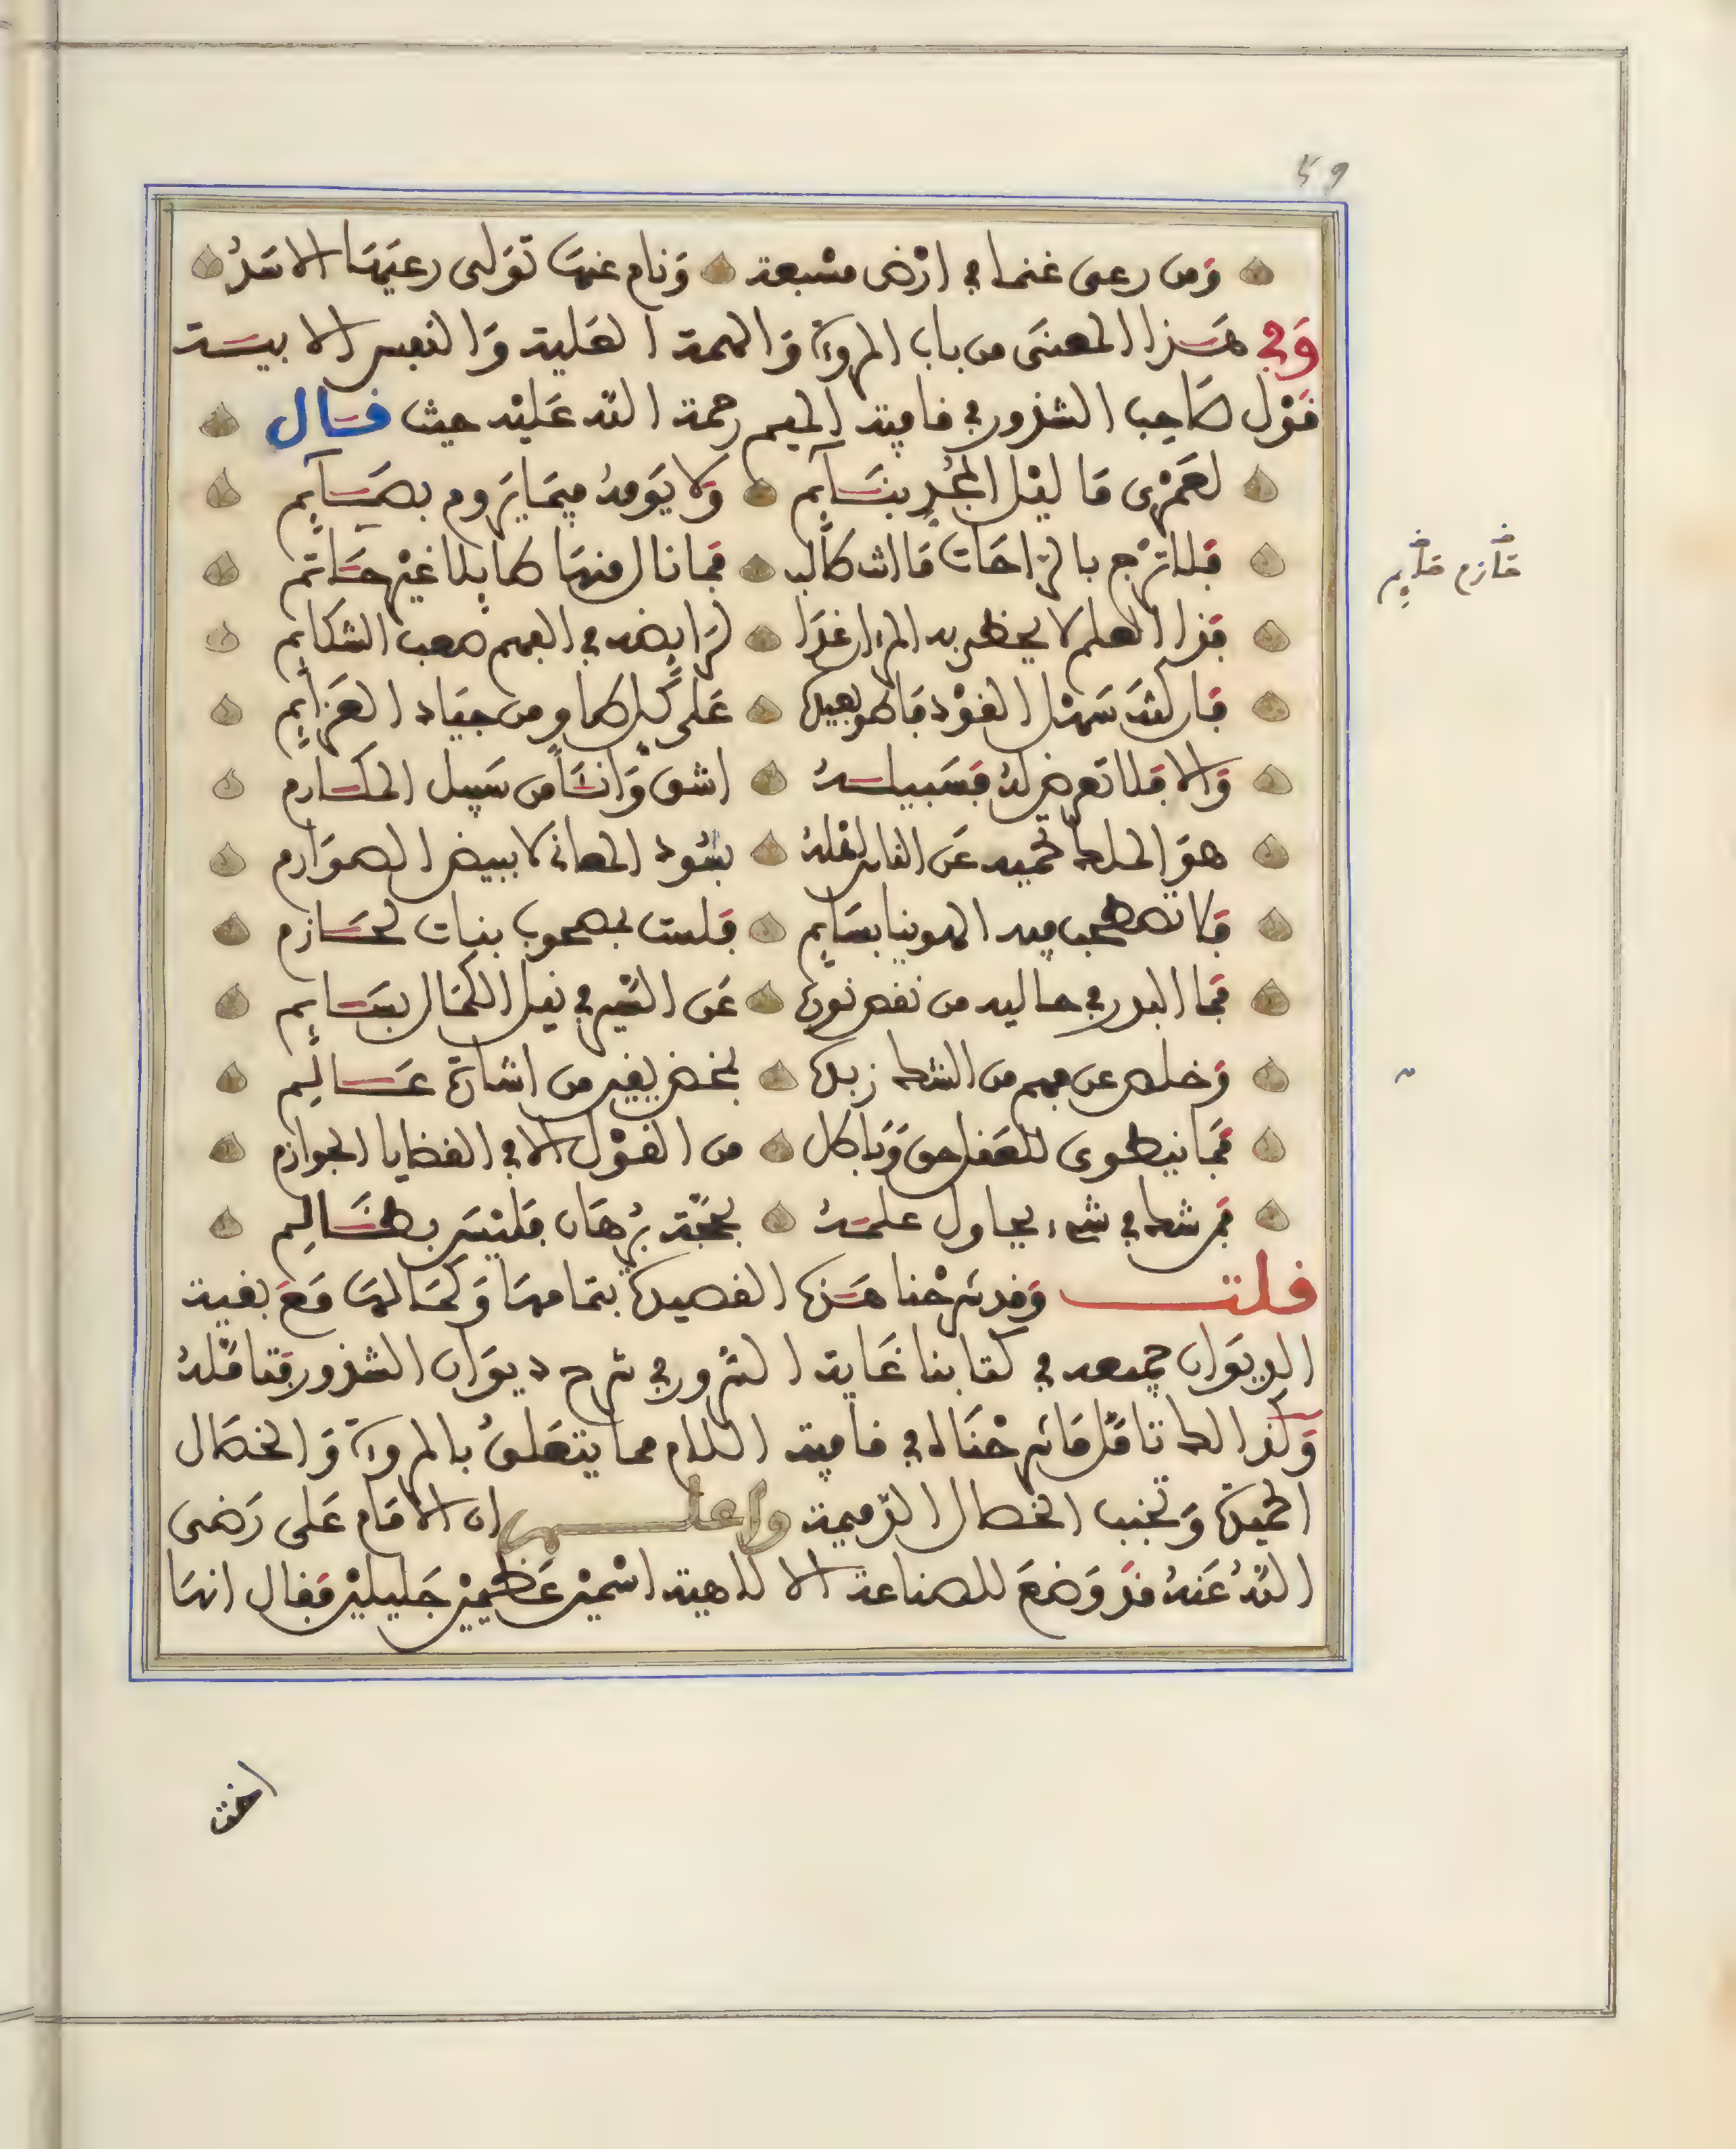 59
وَمن رعى غنما في ارْض مسْبعة وَنام عنهَا توَلى رعيَهَا الاسَدُ
وَفي هَذا المعنَى من باب المروءَة وَالهمة العَلية وَالنفس الابيَة
قوْل صَاحِب الشذور في قافية الميم رحمة الله عَليْه حيث قَال
لعَمْرِى مَا ليْل المُجدِّ بنَائم وَلا يَوْمهُ فيمَا يَرُوم بصَائِم
فلا ترج بالرَّاحَات مَا انت طالب فما نال منهَا طايلا غيْر حَاتم
فذا العلم لا يحظى به المرء او غدَا لرَايضه في الفهم صعب الشكَائِم
فان كنتَ سَهْل القوْد فاطو بعيده عَلى كل طاو من جيَاد العَزَائِم
وَالا فلا تعرض لهُ فسَبيلهُ اشق وَانئا من سَبيل المكَارم
هوَ الملك تحميه عَن الناس اهْلهُ بسُود المعاني لا ببيض الصوَارم
فلا تصطحب فيه الهوينا بسَائِم فلست بمصحوب بنيات لحَازم
فما البدر في حاليه من نقص نوره عَن السَّيْر في نيل الكمَال بسَائِم
وَخلص عن فهم من الشك زبده بمخض يقين من اشارة عَالِم
فمَا ينطوى للعقل حق وَباطل من القوْل الا في القضايا الجوازم
فمن شك في شيء يحاول علمَهُ بحجّة بُرْهَان فليْسَ بظَالِم
قلت وَقد شرحْنا هَذه القصيدة بتمامهَا وَكمَالهَا مَعَ بقية
الديوَان جميعه في كتابنا غَاية السُّرور في شرح ديوَان الشذور فتامّلهُ
وَكذالك تامّل مَا شرحْنَاه في قافية اللام مما يتعَلق بالمروءَة وَالخصَال
الحميدة وَتجنب الخصال الذّميمة واعلم ان الامَام عَلى رَضى
اللهُ عَنهُ قد وَضعَ للصناعة الالاهية اسْميْن عَظيميْن جَليليْن فقال انهَا
حَازم حَايِم
اخت